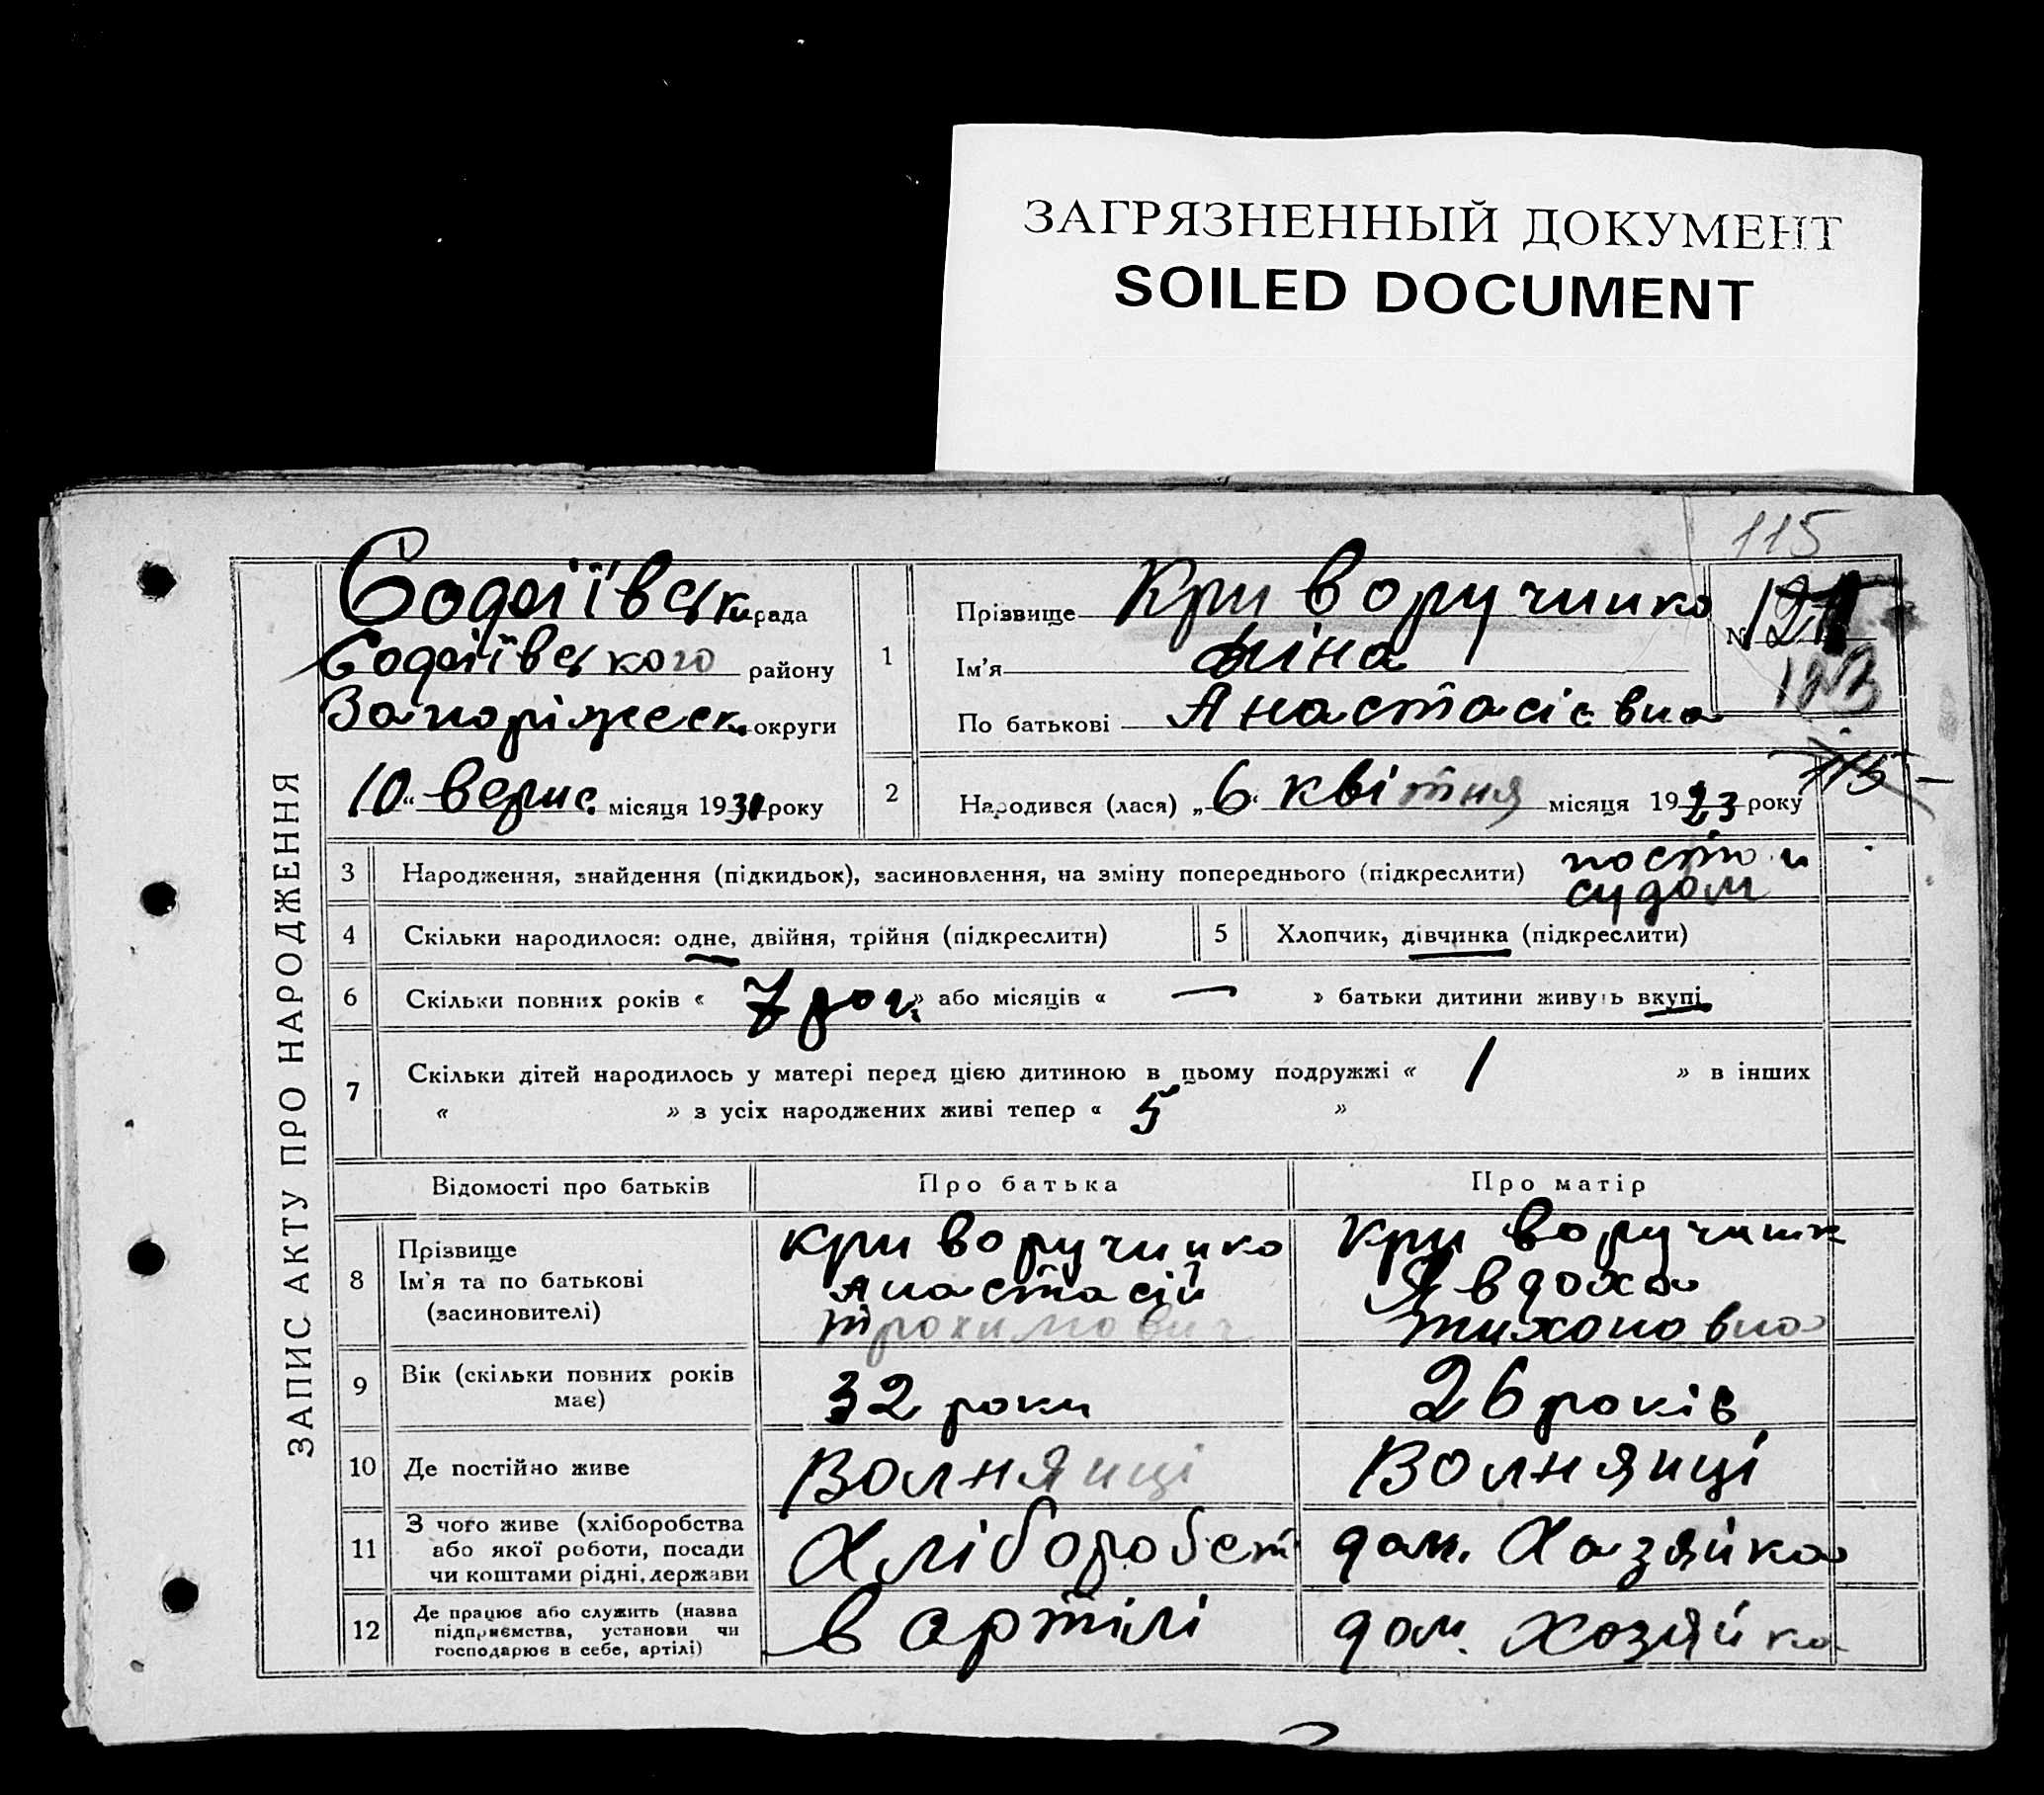 ЗАГРЯЗНЕННЫЙ ДОКУМЕНТ
SOILED DOCUMENT
115
ЗАПИС АКТУ ПРО НАРОДЖЕННЯ
Софіївськ рада
Софіївського району
Запоріжськ. округи
10 " верис. місяця 1931 року
1
Прізвище Криворучшко
Ім'я
По батькові Анастасієвна
№ 121
123
2
Народився (лася) „6“ квітня місяця 1923 року
115
3
Народження, знайдення (підкидьок), засиновлення, на зміну попереднього (підкреслити) судом
4
Скільки народилося: одне, двійня, трійня (підкреслити)
5
Хлопчик, дівчинка (підкреслити)
6
Скільки повних років « 7 рок. » або місяців « — » батьки дитини живуть вкупі
7
Скільки дітей народилось у матері перед цією дитиною в цьому подружжі « 1 » в інших
« » з усіх народжених живі тепер « 5 »
Відомості про батьків
Про батька
Про матір
8
Прізвище
Ім'я та по батькові
(засиновителі)
Криворучинко
Анастасій
Трохимович
Криворучинк
Явдоха
Тихоновна
9
Вік (скільки повних років
має)
32 роки
26 років
10
Де постійно живе
Волнянці
Волнянці
11
З чого живе (хліборобства
або якої роботи, посади
чи коштами рідні, держави
Хліборобст
дом. Хазяйка
12
Де працює або служить (назва
підприємства, установи чи
господарює в себе, артілі)
в артілі
дом. хозяйка